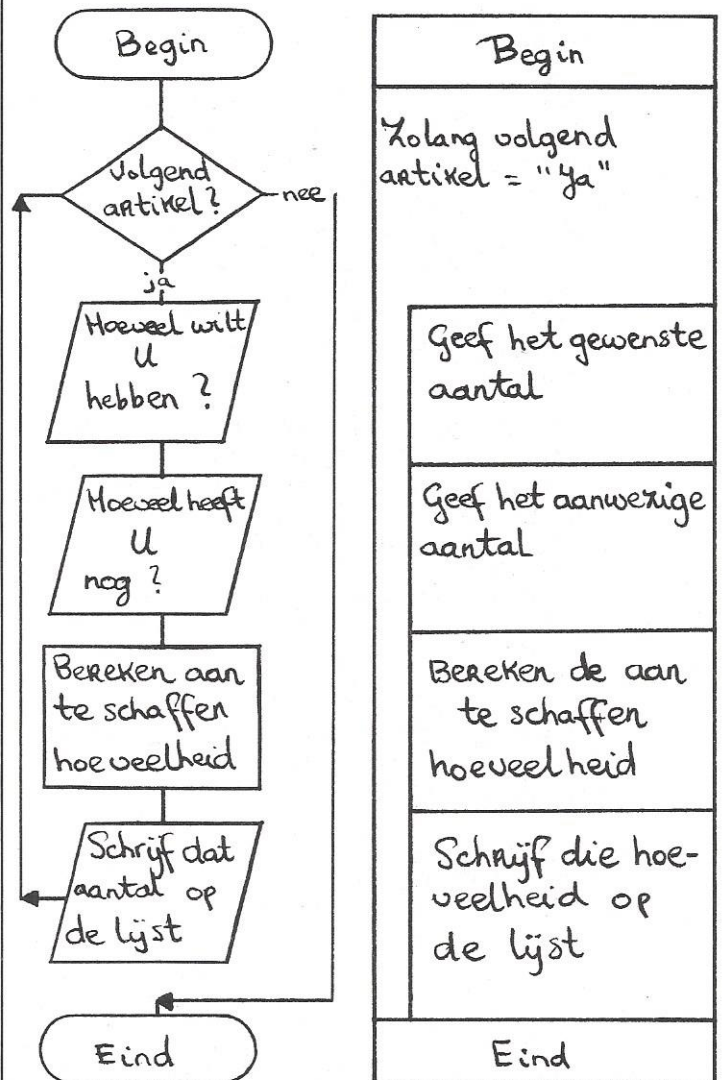 Begin
Volgend
artikel?
nee
ja
Hoeveel wilt
U
hebben ?
Hoeveel heeft
U
nog ?
Bereken aan
te schaffen
hoeveelheid
Schrijf dat
aantal op
de lijst
Eind
Begin
Zolang volgend
artikel = "Ja"
Geef het gewenste
aantal
Geef het aanwezige
aantal
Bereken de aan
te schaffen
hoeveelheid
Schrijf die hoe-
veelheid op
de lijst
Eind